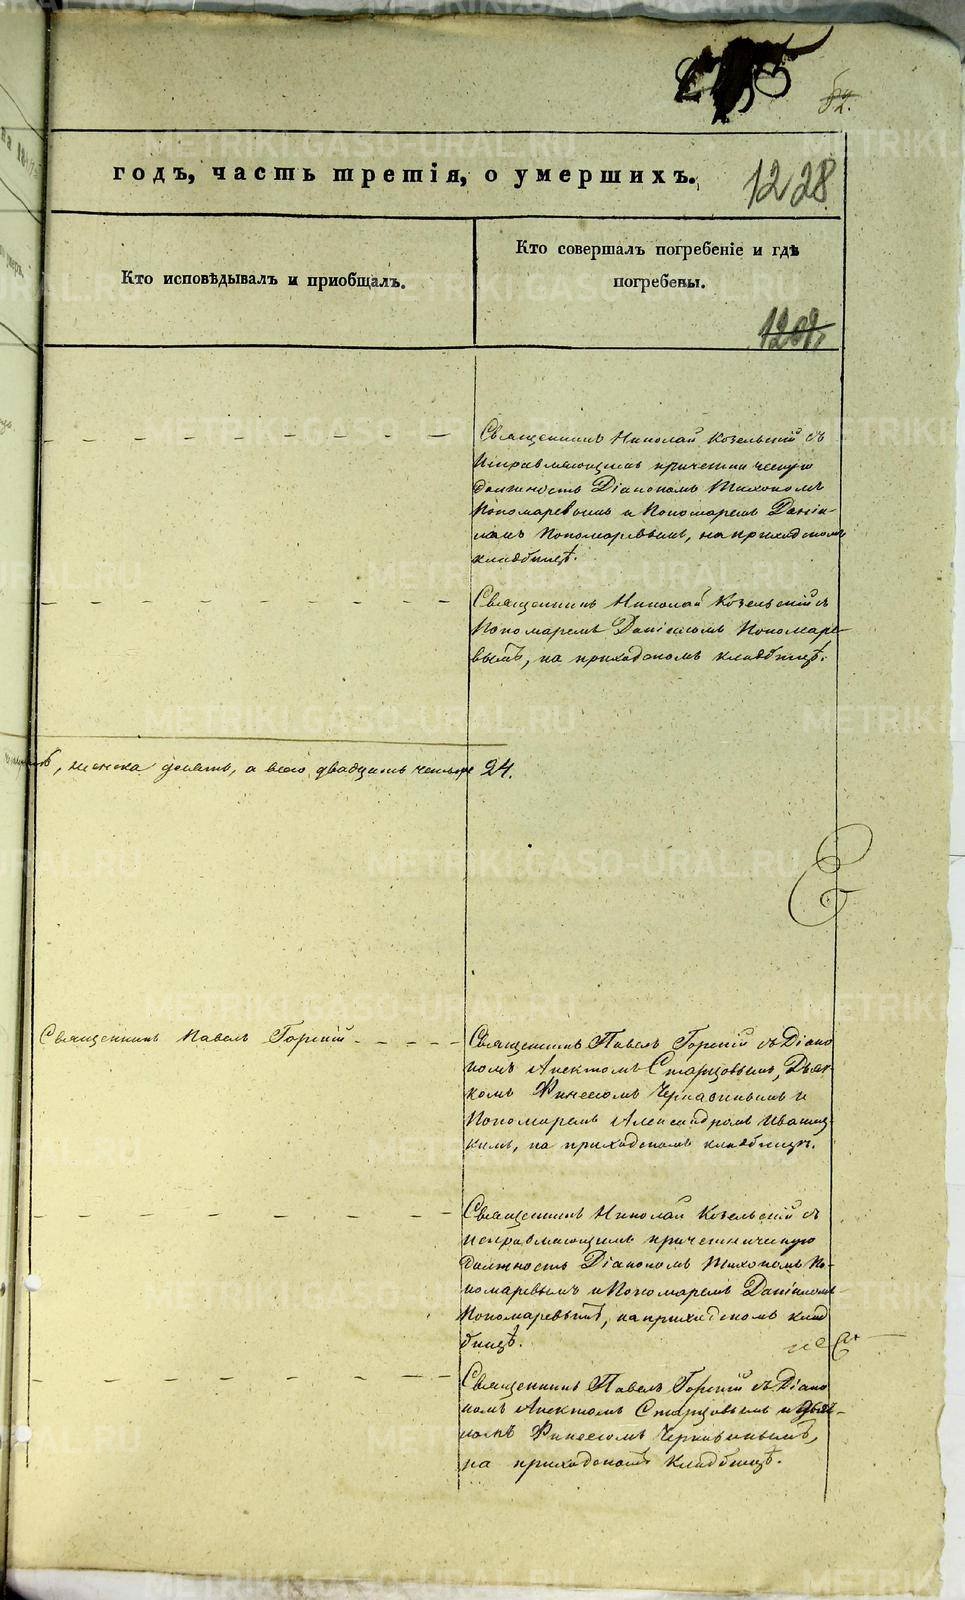 82.
годъ, часть третія, о умершихъ.
1228
Кто исповѣдывалъ и пріобщалъ.
Кто совершалъ погребеніе и гдѣ
погребены.
1201
Священникъ Николай Козельскій съ
Исправляющимъ причетническую
должность Діакономъ Тихономъ
Пономаревымъ и Пономаремъ Даніи-
ломъ Пономаревымъ, на приходскомъ
кладбищѣ.
Священникъ Николай Козельскій съ
Пономаремъ Даніиломъ Пономаре-
вымъ, на приходскомъ кладбищѣ.
женска десять, а всего двадцать четыре 24.
Священникъ Павелъ Горскій
Священникъ Павелъ Горскій съ Діако
номъ Старцовымъ, Дьяч-
комъ Финеесомъ и
Пономаремъ Александромъ Иваниц-
кимъ, на приходскомъ кладбищѣ.
Священникъ Николай Козельскій съ
исправляющимъ причетническую
должность Діакономъ Тихономъ По-
номаревымъ и Пономаремъ Даніиломъ
Пономаревымъ, на приходскомъ клад
бищѣ.
Священникъ Павелъ Горскій съ Діако
номъ Старцовымъ и Дьяч-
комъ Финеесомъ
на приходскомъ кладбищѣ.
METRIKI.GASO-URAL.RU